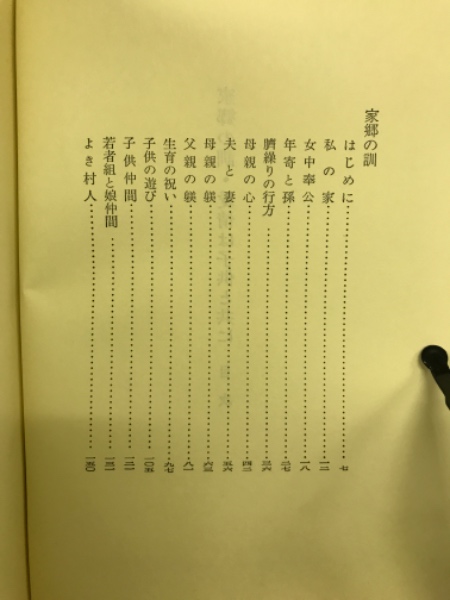 家郷の訓
はじめに……七
私の家……一二
女中奉公……一八
年寄と孫……二七
臍繰りの行方……三六
母親の心……四二
夫と妻……五六
母親の躾……六三
父親の躾……八一
生育の祝い……九七
子供の遊び……一〇五
子供仲間……一二一
若者組と娘仲間……一三一
よき村人……一五〇